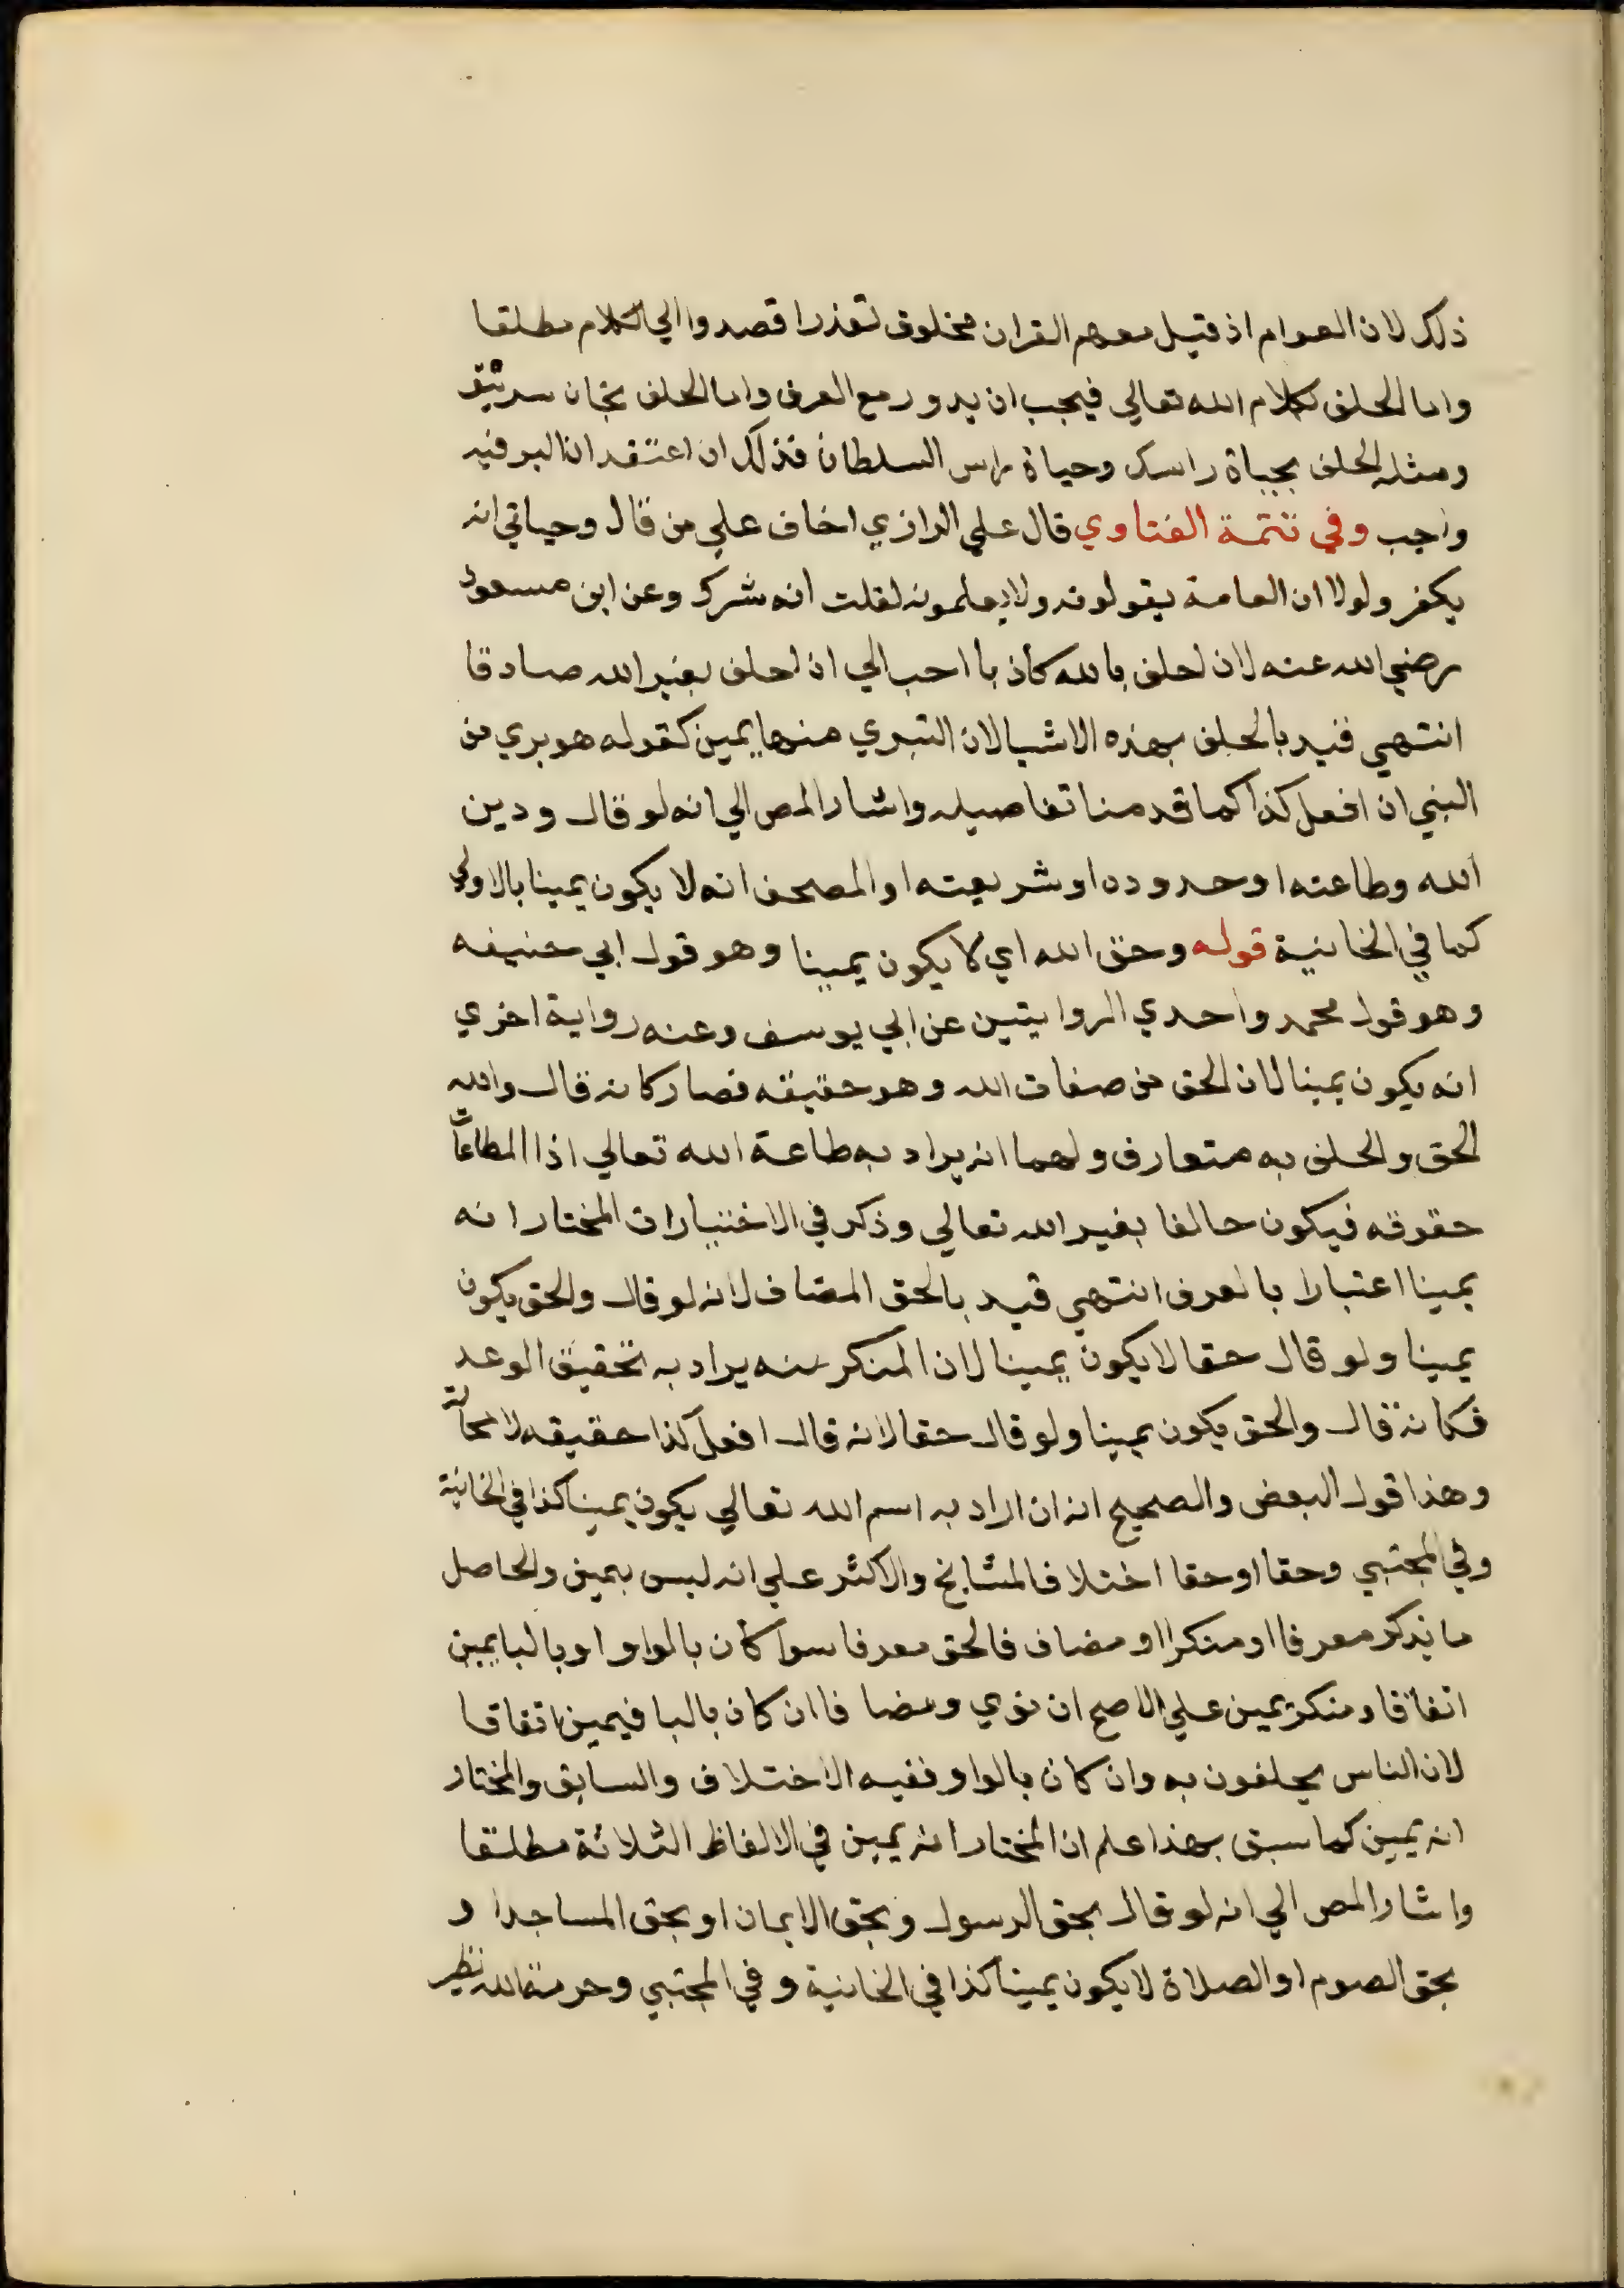 ذلك لان العوام اذ قيل معهم القران مخلوق تعذرا قصدوا الي الكلام مطلقا
واما الحلف بكلام الله تعالي فيجب ان يدور مع العرف واما الحلف بجان سر تيقو
ومثله الحلف بحياة راسك وحياة راس السلطان فذلك ان اعتقد ان البر فيه
واجب وفي تتمة الفتاوي قال علي الرازي اخاف علي من قال وحياتي انه
يكفر ولولا ان العامة يقولونه ولا يعلمونه لقلت انه شرك وعن ابن مسعود
رضي الله عنه لان احلف بالله كاذبا احب الي ان احلف بغير الله صادقا
انتهي قيد بالحلف بهذه الاشيا لان التبري منها يمين كقوله هو بري من
النبي ان افعل كذا كما قدمنا تفاصيله واشار المص الي انه لو قال ودين
الله وطاعته او حدوده او شريعته او المصحف انه لا يكون يمينا بالاولي
كما في الخانية قوله وحق الله اي لا يكون يمينا وهو قول ابي حنيفه
وهو قول محمد واحدي الروايتين عن ابي يوسف وعنه رواية اخري
انه يكون يمينا لان الحق من صفات الله وهو حقيقه فصار كانه قال والله
الحق والحلف به متعارف ولهما انه يراد به طاعة الله تعالي اذا الطاعات
حقوقه فيكون حالفا بغير الله تعالي وذكر في الاختيارات المختار انه
يمينا اعتبارا بالعرف انتهي قيد بالحق المضاف لانه لو قال والحق يكون
يمينا ولو قال حقا لا يكون يمينا لان المنكر منه يراد به تحقيق الوعد
فكانه قال والحق يكون يمينا ولو قال حقا لانه قال افعل كذا حقيقه لا محالة
وهذا قول البعض والصحيح انه ان اراد به اسم الله تعالي يكون يمينا كذا في الخانية
وفي المجتبي وحقا او حقا اختلاف المشايخ والاكثر علي انه ليس بيمين والحاصل
ما يذكر معرفا او منكرا او مضاف فالحق معرفا سوا كان بالواو او بالبا يمين
اتفاقا ومنكر يمين علي الاصح ان نوي ومضا فا ان كان بالبا فيمين اتفاقا
لان الناس يحلفون به وان كان بالواو ففيه الاختلاف والسابق والمختار
انه يمين كما سبق بهذا علم ان المختار انه يمين في الالفاظ الثلاثة مطلقا
واشار المص الي انه لو قال بحق الرسول وبحق الايمان او بحق المساجد او
بحق الصوم او الصلاة لا يكون يمينا كذا في الخانية وفي المجتبي وحرمة الله نظير